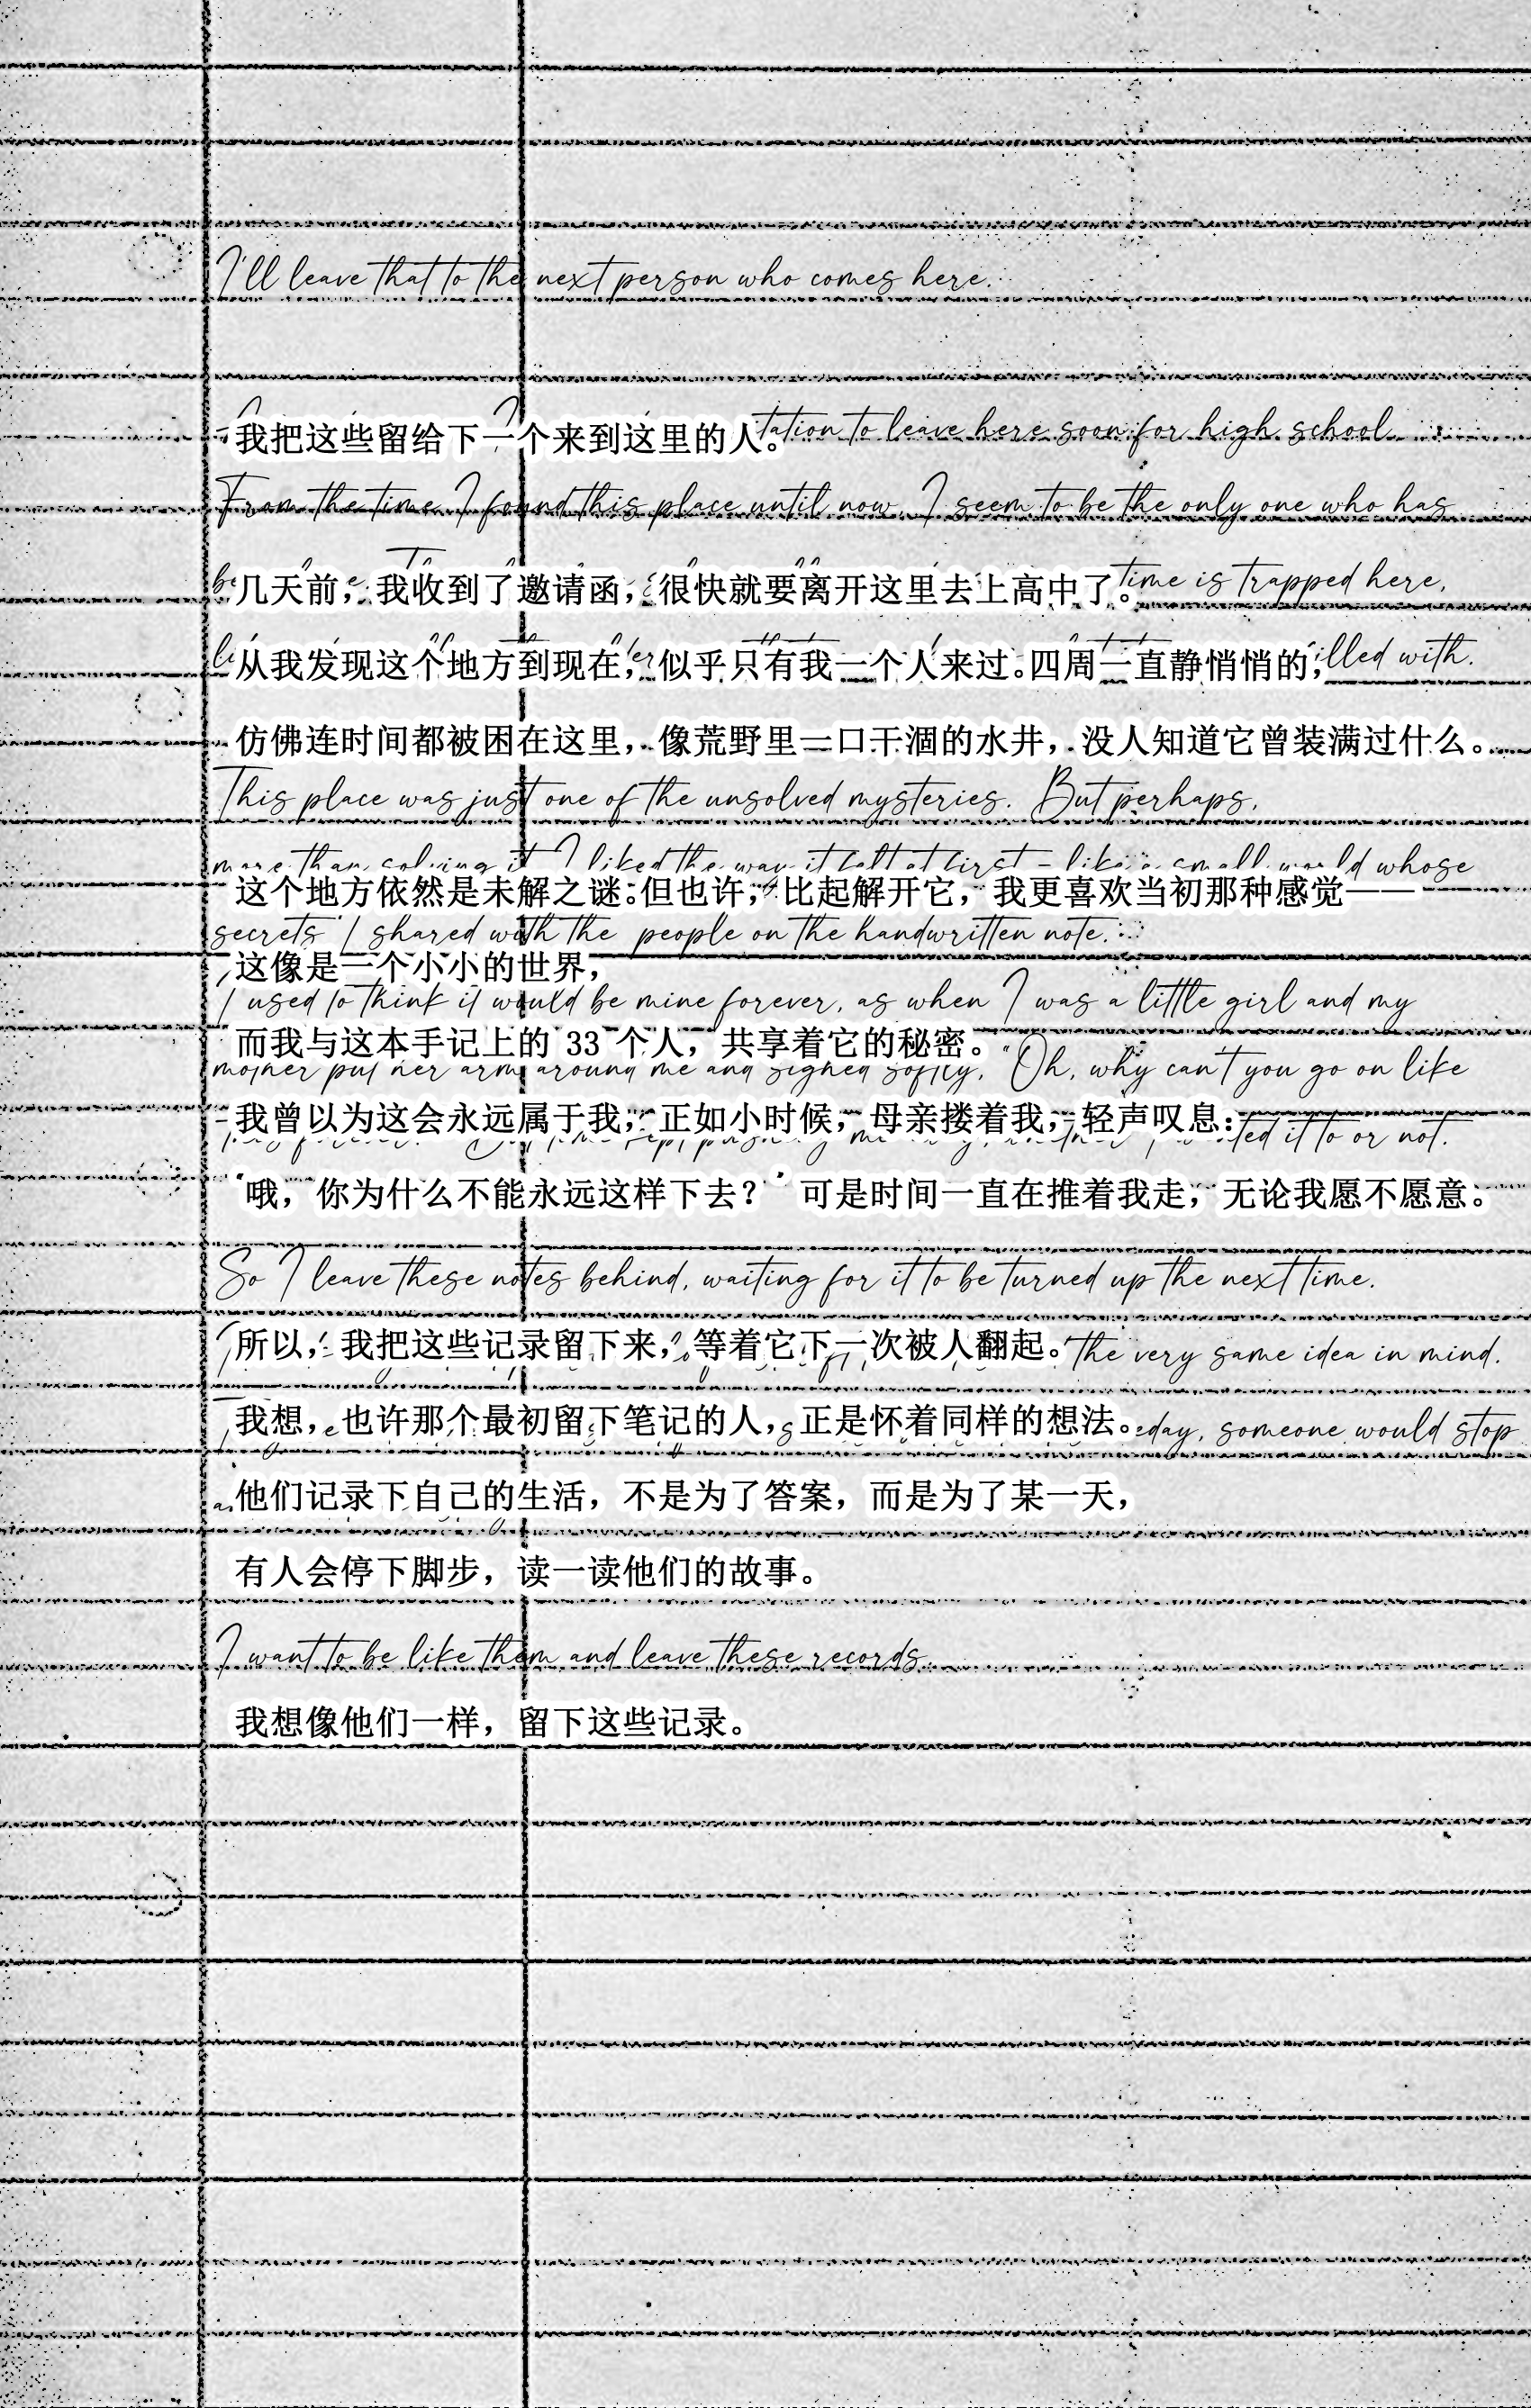 I'll leave that to the next person who comes here.
我把这些留给下一个来到这里的人。
tation to leave here soon for high school
From the time I found this place until now, I seem to be the only one who has
几天前，我收到了邀请函，很快就要离开这里去上高中了。
time is trapped here,
从我发现这个地方到现在，似乎只有我一个人来过。四周一直静悄悄的，
illed with.
仿佛连时间都被困在这里，像荒野里一口干涸的水井，没人知道它曾装满过什么。
This place was just one of the unsolved mysteries. But perhaps,
more than solving it, I liked the way it felt at first - like a small world whose
这个地方依然是未解之谜。但也许，比起解开它，我更喜欢当初那种感觉——
secrets I shared with the people on the handwritten note.
这像是一个小小的世界，
I used to think it would be mine forever, as when I was a little girl and my
而我与这本手记上的 33 个人，共享着它的秘密。
mother put her arm around me and sighed softly, "Oh, why can't you go on like
我曾以为这会永远属于我，正如小时候，母亲搂着我，轻声叹息：
ted it to or not.
“哦，你为什么不能永远这样下去？” 可是时间一直在推着我走，无论我愿不愿意。
So I leave these notes behind, waiting for it to be turned up the next time.
所以，我把这些记录留下来，等着它下一次被人翻起。
the very same idea in mind.
我想，也许那个最初留下笔记的人，正是怀着同样的想法。
eday, someone would stop
他们记录下自己的生活，不是为了答案，而是为了某一天，
有人会停下脚步，读一读他们的故事。
I want to be like them and leave these records.
我想像他们一样，留下这些记录。